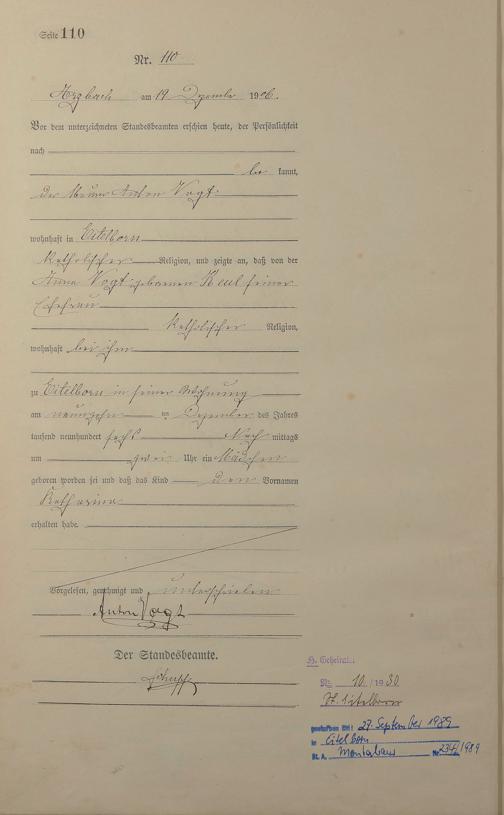 Seite 110
Nr. 110
Arzbach am 19 Dezember 1906.
Vor dem unterzeichneten Standesbeamten erschien heute, der Persönlichkeit
nach
be kannt,
der Maurer Anton Vogt
wohnhaft in Eitelborn
katholischer Religion, und zeigte an, daß von der
Anna Vogt geborenen Keul seiner
Ehefrau
katholischer Religion,
wohnhaft bei ihm
zu Eitelborn in seiner Wohnung
am neunzehn ten Dezember des Jahres
tausend neunhundert sechs Nach mittags
um zwei Uhr ein Mädchen
geboren worden sei und daß das Kind den Vornamen
Katharina
erhalten habe.
Vorgelesen, genehmigt und unterschrieben
Anton Vogt
Der Standesbeamte.
H. Geheirat.
Nr. 10/1930
St. Eitelborn
gestorben am: 27 September 1989
in Eitelborn
St. A. Montabaur Nr. 234/1989